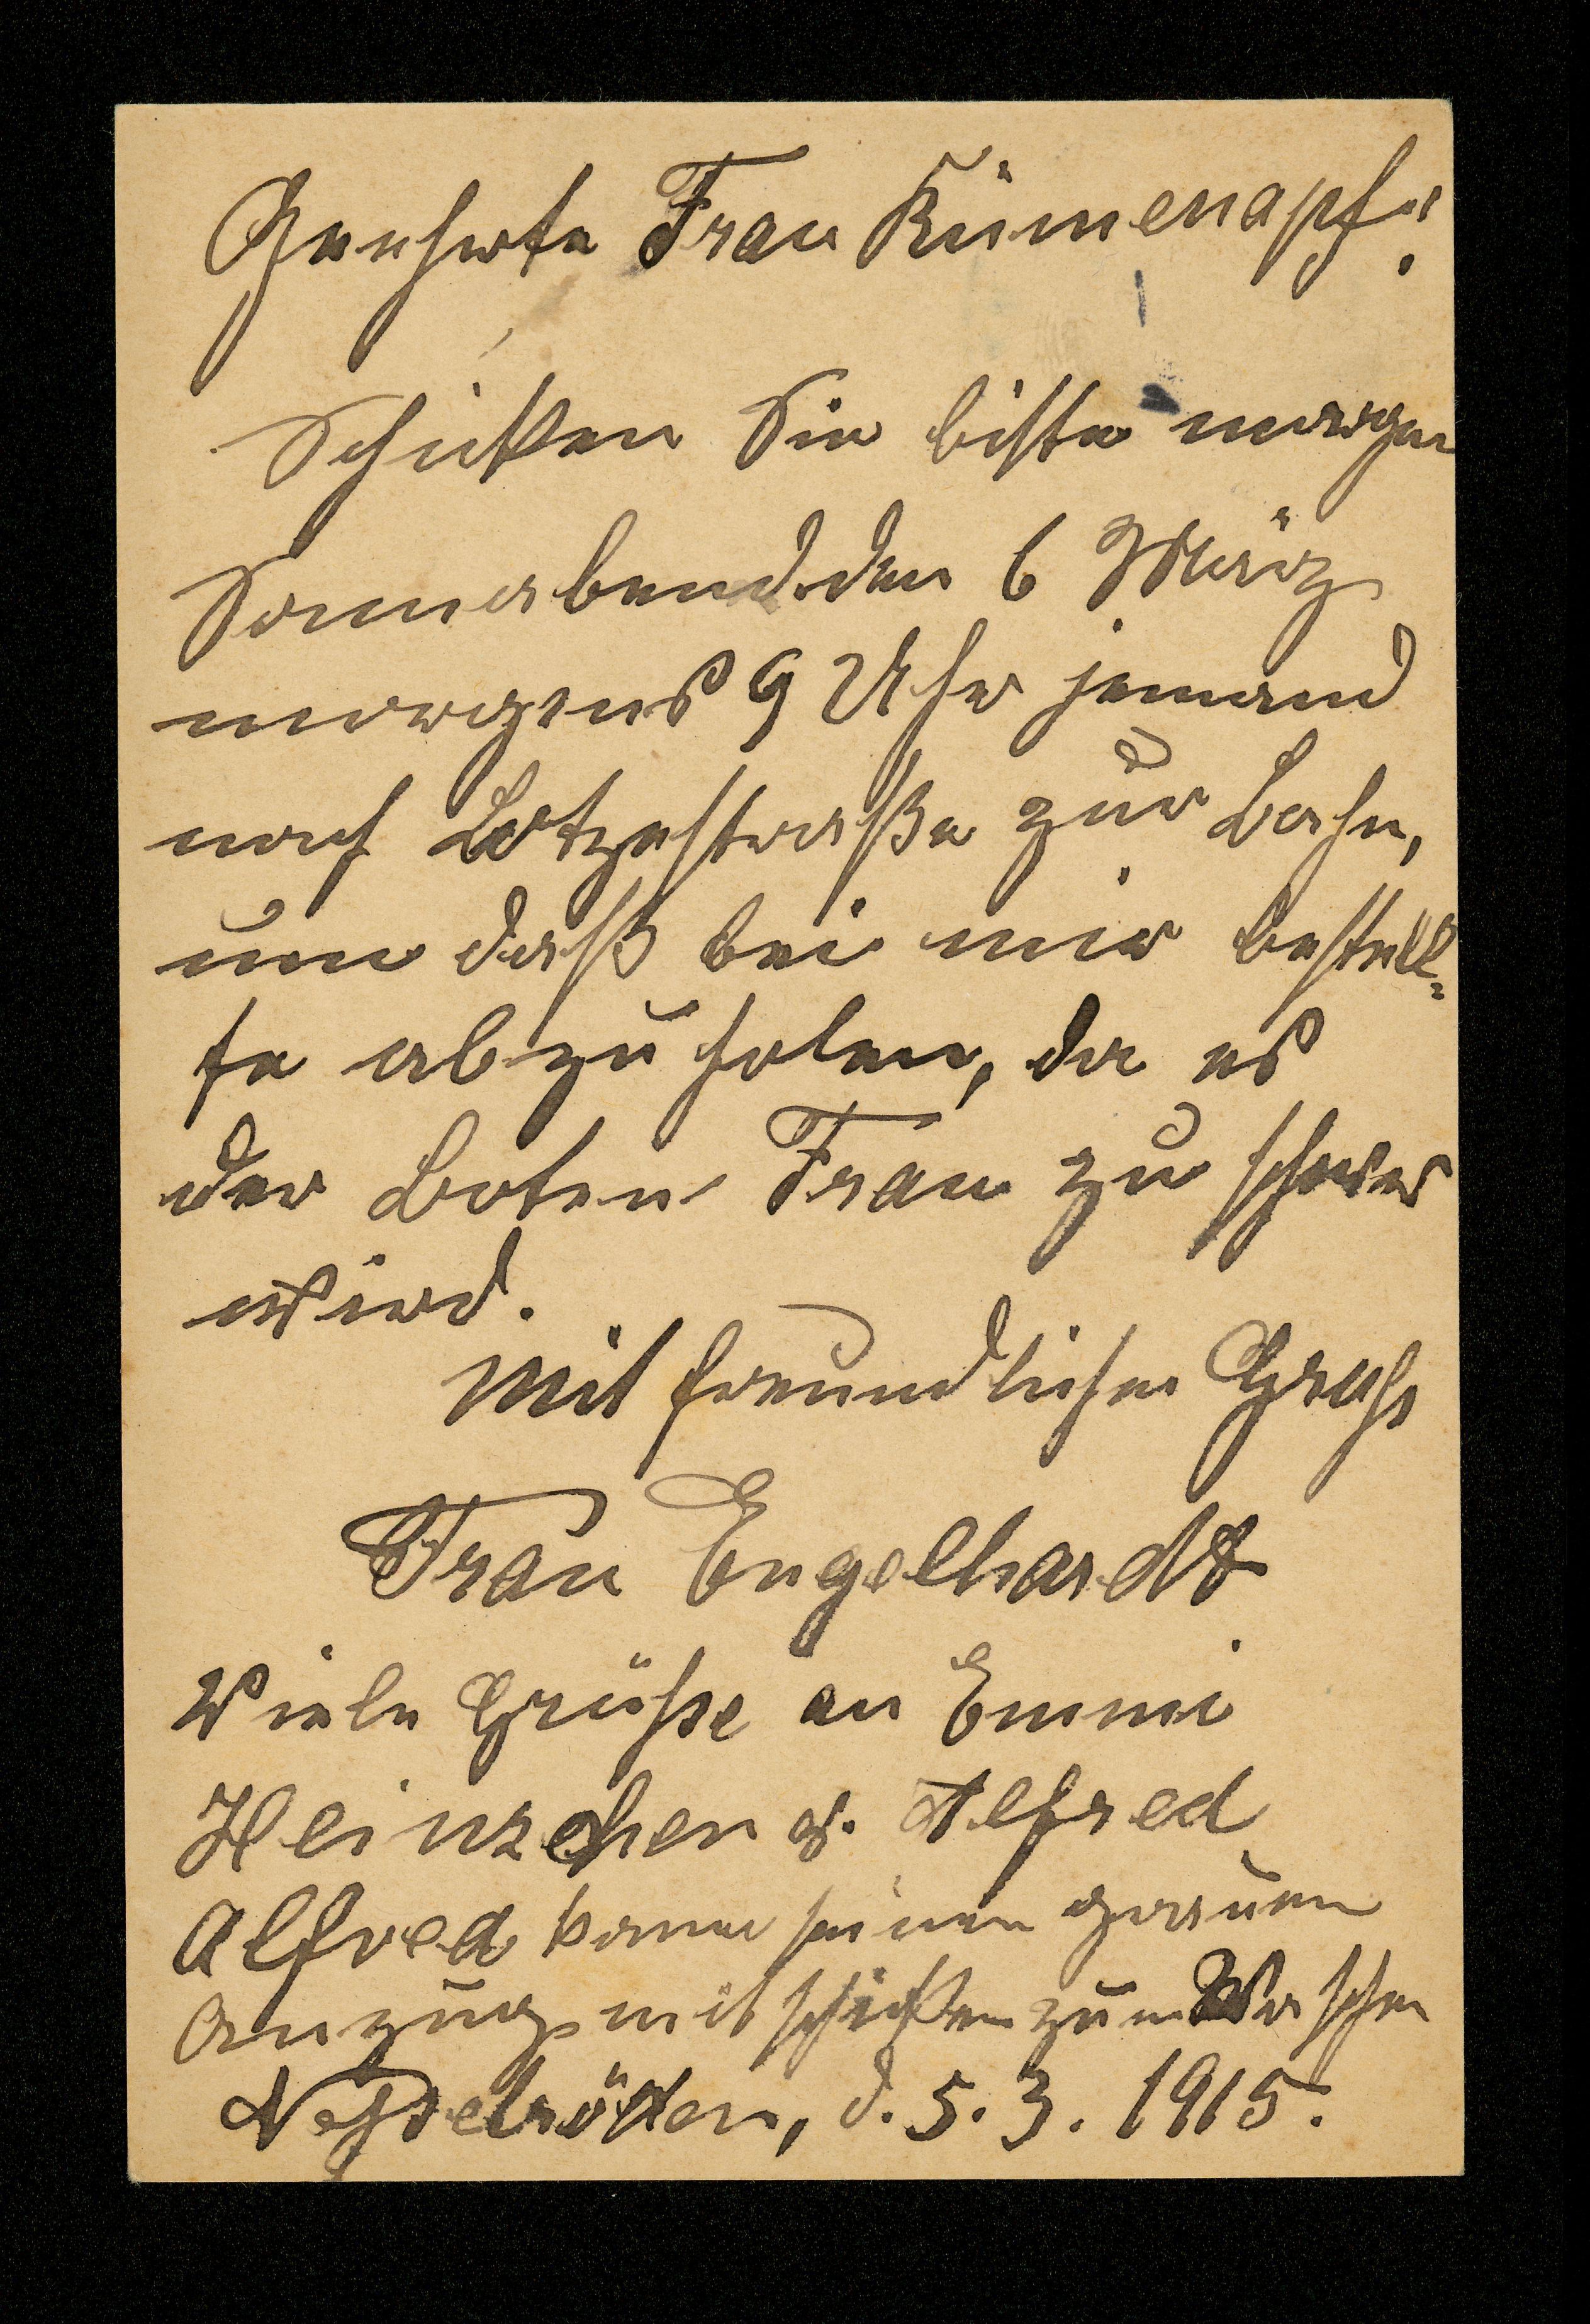 Geehrte Frau Kümenapf!
Schicken Sie bitte morgen
Sonnabend den 6 März
morgens 9 Uhr jemand
nach Lotzestraße zur Bahn,
um daß bei mir bestell-
te abzuholen, da es
der Boten Frau zu schwer
wird.
Mit freundlichen Gruß
Frau Engelhardt
Viele Grüße an Emmi
Heinzchen u. Alfred
Alfred kann seinen grauen
Anzug mit schicken zum Waschen
Nesselröden, d. 5. 3. 1915.